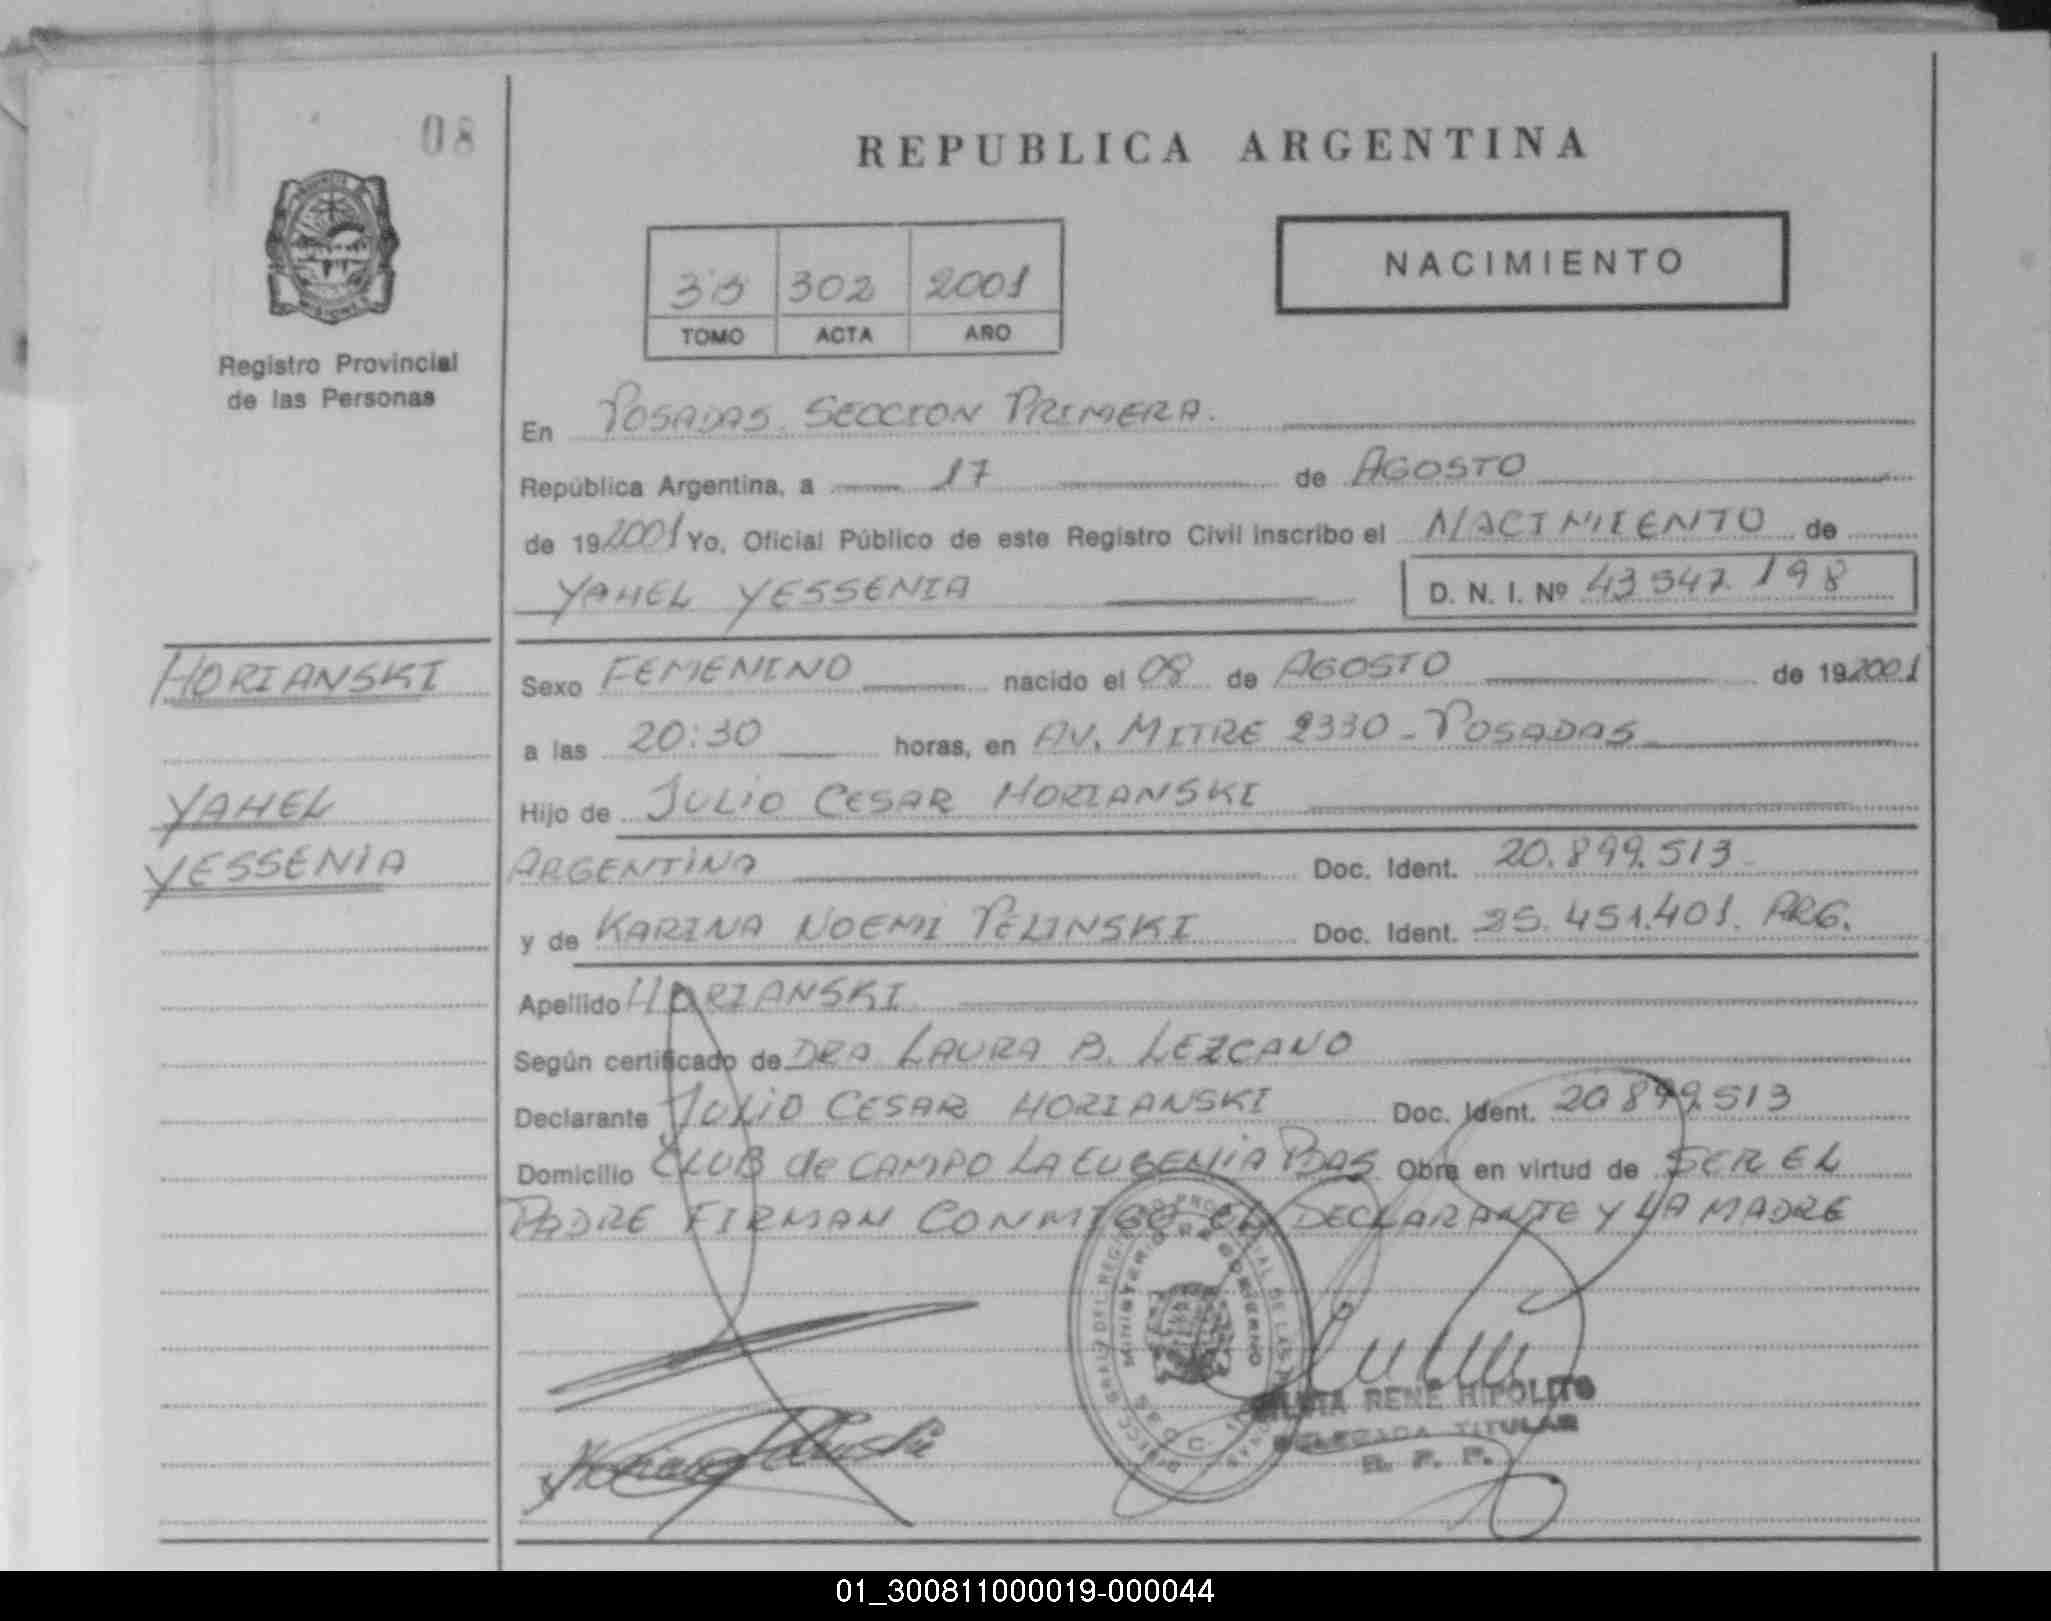 08
REPUBLICA ARGENTINA
NACIMIENTO
302 2001
TOMO ACTA AÑO
Registro Provincial
de las Personas
En POSADAS SECCION PRIMERA.
República Argentina, a 17 de AGOSTO
de 19 2001 Yo, Oficial Público de este Registro Civil inscribo el NACIMIENTO de
YAHEL YESSENIA D. N. I. Nº 43 547 198
HORIANSKI
YAHEL
YESSENIA
Sexo FEMENINO nacido el 08 de AGOSTO de 19 2001
a las 20:30 horas, en AV. MITRE 2330 - POSADAS
Hijo de JULIO CESAR HORIANSKI
ARGENTINA Doc. Ident. 20.899.513
y de KARINA NOEMI PELINSKI Doc. Ident. 25.451.401. ARG.
Apellido HORIANSKI
Según certificado de DRA LAURA B. LEZCANO
Declarante JULIO CESAR HORIANSKI Doc. Ident. 20 899.513
Domicilio CLUB de CAMPO LA EUGENIA Obra en virtud de SER EL
PADRE FIRMAN CONMIGO EL DECLARANTE Y LA MADRE
MINISTERIO DE GOBIERNO
RENE HIPOLITO
DELEGADA TITULAR
R. P. P.
01_300811000019-000044